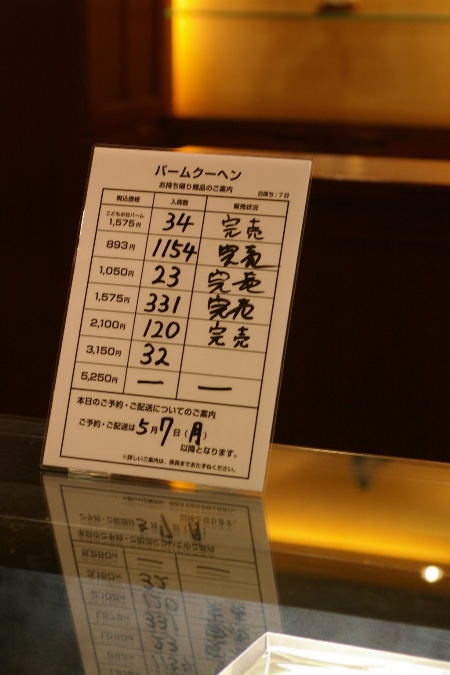 バームクーヘン
お持ち帰り商品のご案内
日持ち:7日
税込価格 入荷数 販売状況
こどもの日バーム
1,575円 34 完売
893円 1154 完売
1,050円 23 完売
1,575円 331 完売
2,100円 120 完売
3,150円 32
5,250円 ー ー
本日のご予約・ご配送についてのご案内
ご予約・ご配送は5月7日(月)
以降となります。
※詳しいご案内は、係員までおたずねください。